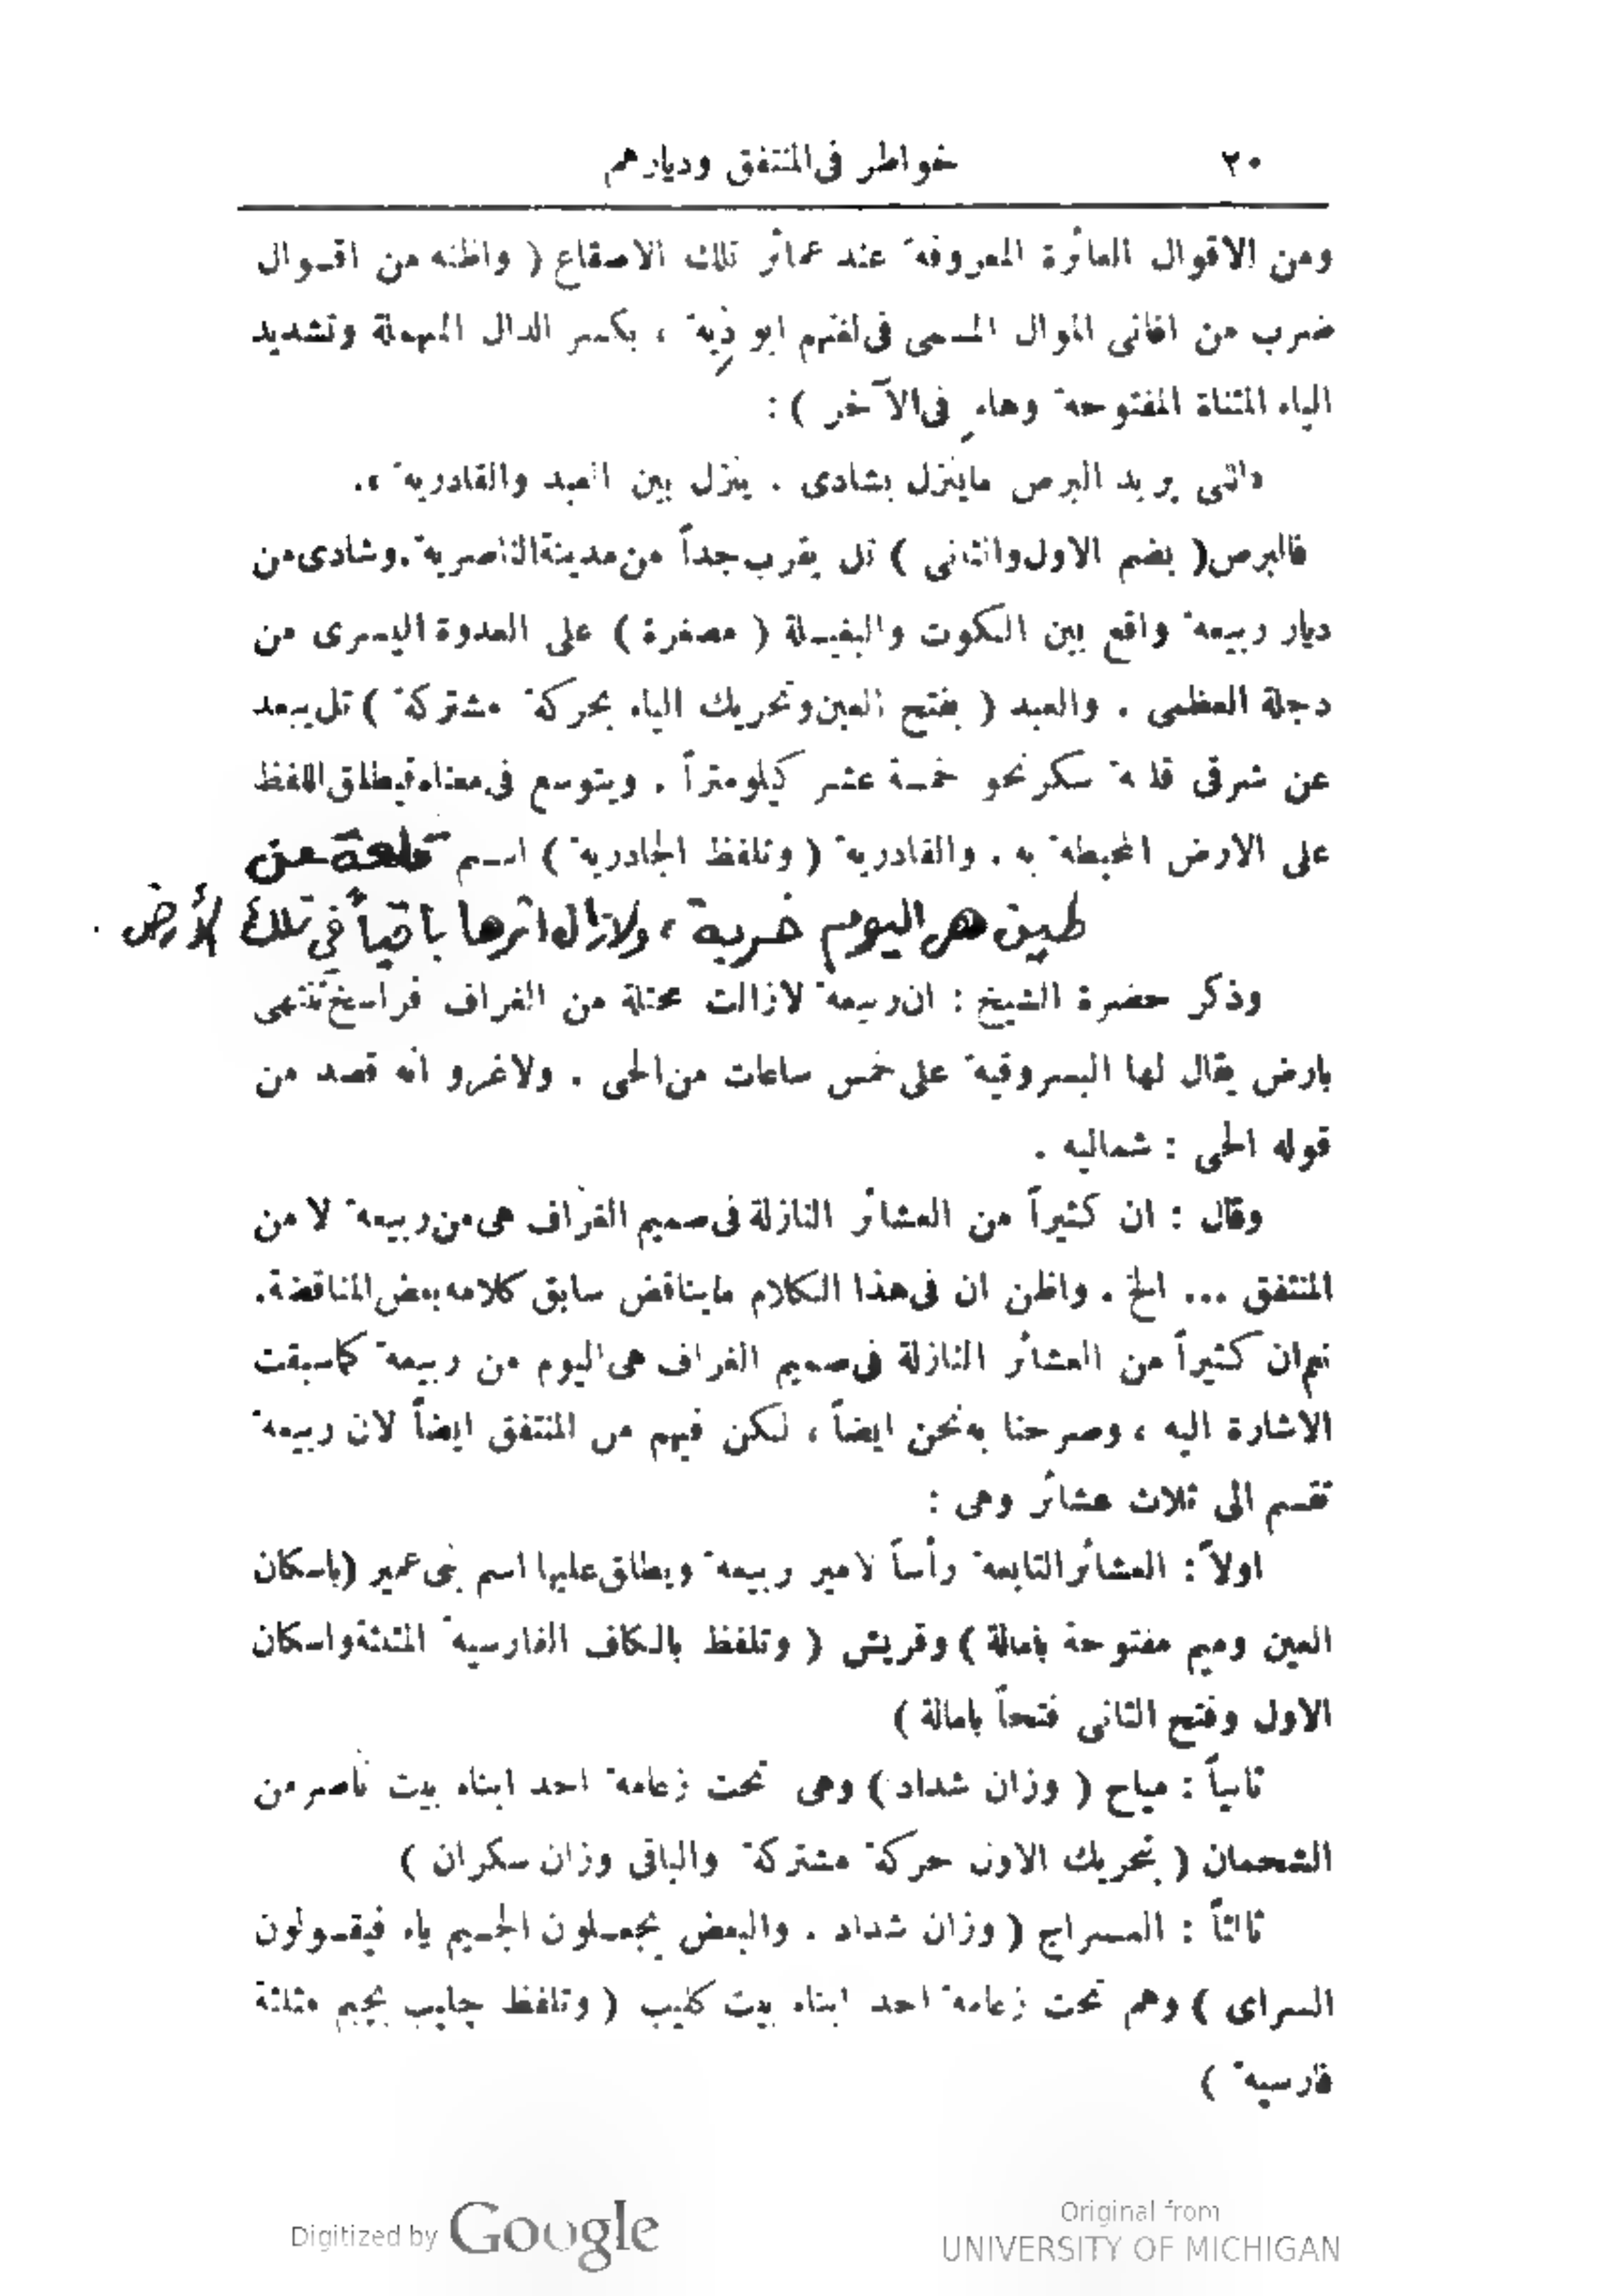 ٢٠ خواطر فى المنتفق وديارهم
ومن الاقوال العائرة المعروفة عند عمائر تلك الاصقاع ( واظنه من اقوال
ضرب من اغانى الموال المسمى فى لغتهم ابو ذِيه ، بكسر الدال المهملة وتشديد
الياء المثناة المفتوحة وهاءٍ فى الآخر ) :
«اللى يريد البرص ماينزل بشادى . ينزل بين العبد والقادرية ».
فالبرص ( بضم الاول والثانى ) تل يقرب جداً من مدينة الناصرية . وشادى من
ديار ربيعة واقع بين الكوت والبغيلة ( مصغرة ) على العدوة اليسرى من
دجلة العظمى . والعبد ( بفتح العين وتحريك الباء بحركة مشتركة ) تل يبعد
عن شرقى قلعة سكر نحو خمسة عشر كيلومتراً . ويتوسع فى معناه فيطلق اللفظ
على الارض المحيطة به . والقادرية ( وتلفظ الجادرية ) اسم قلعة من
طين هى اليوم خربة ، ولازال اثرها باقياً في تلك الأرض .
وذكر حضرة الشيخ : ان ربيعة لازالت محتلة من الغراف فراسخ تنتهى
بارض يقال لها البسروقية على خمس ساعات من الحى . ولاغرو انه قصد من
قوله الحى : شماليه .
وقال : ان كثيراً من العشائر النازلة فى صميم الغراف هى من ربيعة لا من
المنتفق ... الخ . واظن ان فى هذا الكلام مايناقض سابق كلامه بعض المناقضة.
نعم ان كثيراً من العشائر النازلة فى صميم الغراف هى اليوم من ربيعة كما سبقت
الاشارة اليه ، وصرحنا به نحن ايضاً ، لكن فيهم من المنتفق ايضاً لان ربيعة
تقسم الى ثلاث عشائر وهى :
اولاً : العشائر التابعة رأساً لامير ربيعة ويطلق عليها اسم بنى عمير (باسكان
العين وميم مفتوحة بامالة ) وقريش ( وتلفظ بالكاف الفارسية المثلثة واسكان
الاول وفتح الثانى فتحاً بامالة )
ثانياً : مياح ( وزان شداد ) وهى تحت زعامة احد ابناء بيت ناصر من
الشحمان ( بتحريك الاول حركة مشتركة والباقى وزان سكران )
ثالثاً : السراج ( وزان شداد . والبعض يجعلون الجيم ياء فيقولون
السراى ) وهم تحت زعامة احد ابناء بيت كليب ( وتلفظ چليب بجيم مثلثة
فارسية )
Digitized by Google
Original from
UNIVERSITY OF MICHIGAN